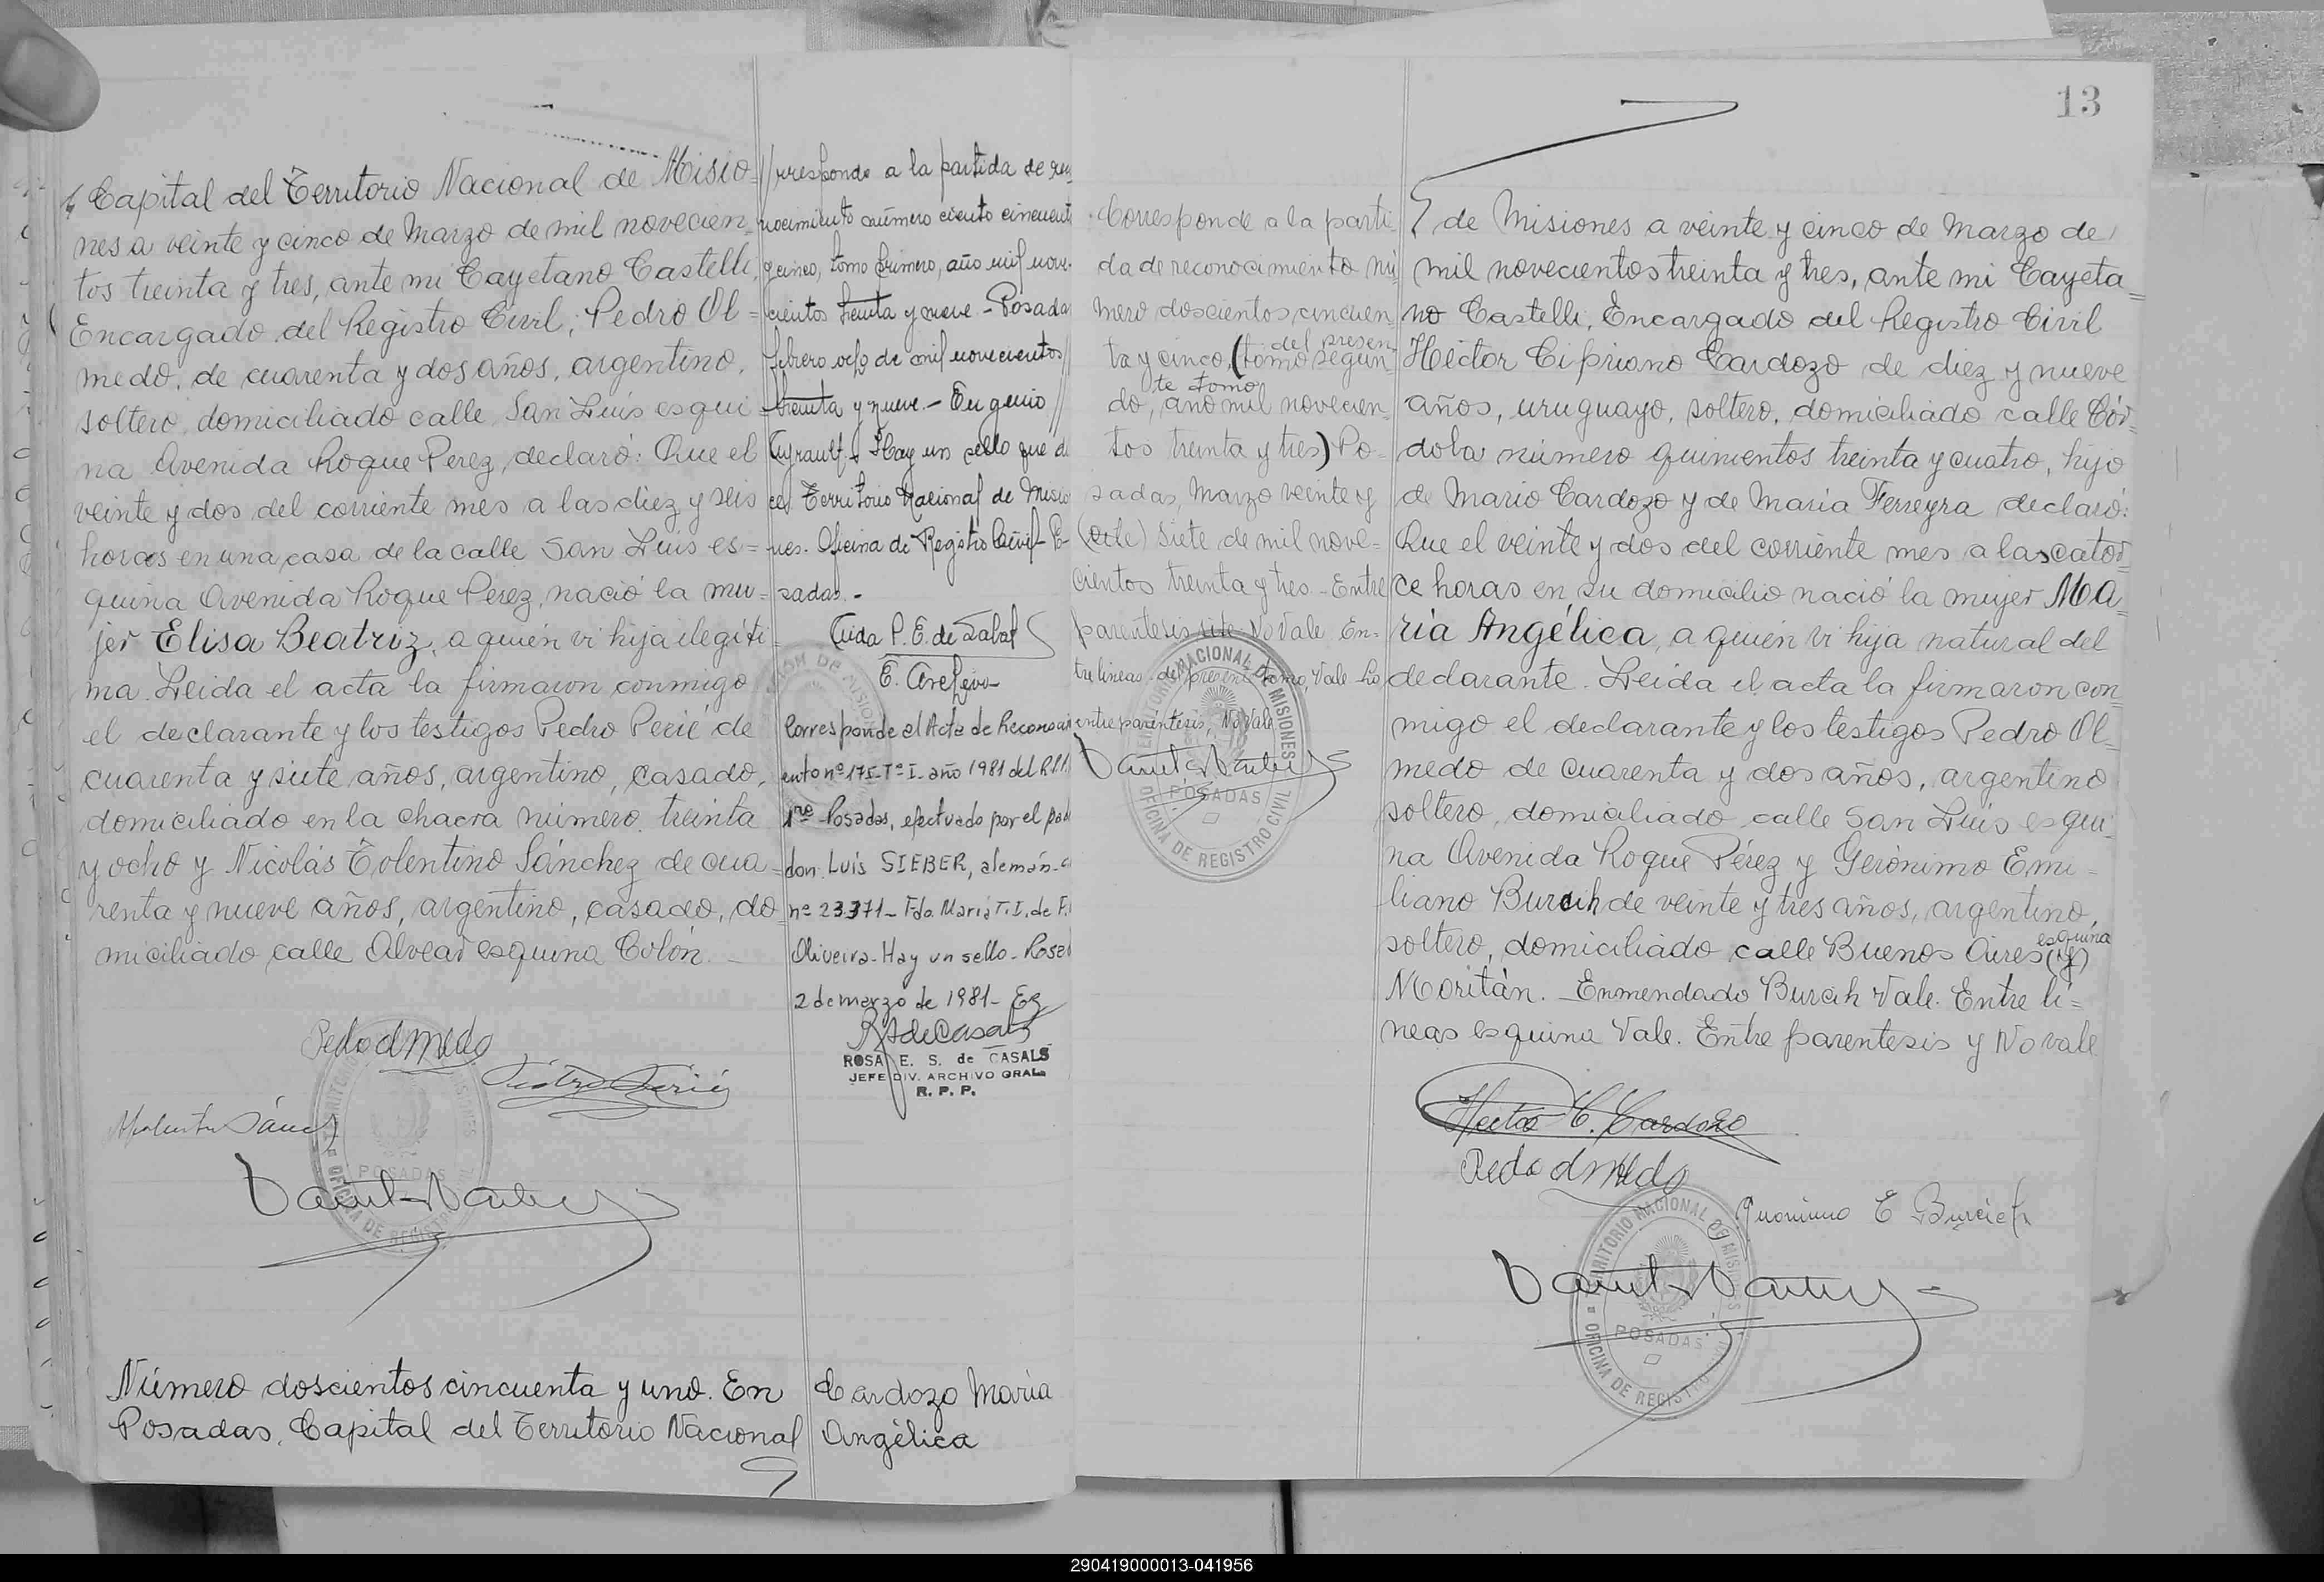 Capital del Territorio Nacional de Misio=
nes a veinte y cinco de Marzo de mil novecien=
tos treinta y tres, ante mi Cayetano Castelli,
Encargado del Registro Civil; Pedro Ol=
medo, de cuarenta y dos años, argentino,
soltero, domiciliado calle San Luís esqui=
na Avenida Roque Perez, declaró: Que el
veinte y dos del corriente mes a las diez y seis
horas en una casa de la calle San Luís es=
quina Avenida Roque Perez, nació la mu=
jer Elisa Beatriz, a quien vi hija ilegíti=
ma. Leida el acta la firmaron conmigo
el declarante y los testigos Pedro Perié de
cuarenta y siete años, argentino, casado,
domiciliado en la chacra número treinta
y ocho y Nicolás Tolentino Sánchez de cua=
renta y nueve años, argentino, casado, do=
miciliado calle Alvear esquina Colón.
Pedro Olmedo
Pedro Perié
Número doscientos cincuenta y uno. En
Posadas, Capital del Territorio Nacional
//rresponde a la partida de re
nocimiento número ciento cincuent
y cinco, tomo primero, año mil nove
cientos treinta y nueve - Posada
febrero ocho de mil novecientos
treinta y nueve.- Eugenio
Hay un sello que di
ce: Territorio Nacional de Misio
nes. Oficina de Registro Civil- P
sadas.-
E. Archivo
Corresponde al Acta de Reconocim
ento nº 175-Tº I- año 1981 del R.P.P.
1ra Posadas, efectuado por el pad
don: Luís SIEBER, alemán-
nº 23.371- Fdo. María T. I. de F.
Oliveira- Hay un sello- Posa
2 de marzo de 1981-
ROSA E. S. de CASALS
JEFE DIV. ARCHIVO GRAL.
R. P. P.
Cardozo María
Angélica
13
Corresponde a la parti
da de reconocimiento nú
mero doscientos cincuen
ta y cinco, (tomo segun
del presen
te tomo
do, año mil novecien
tos treinta y tres) Po
sadas, Marzo veinte y
(site) siete de mil nove=
cientos treinta y tres. Entre
parentesis site- No Vale. En=
tre lineas- del presente tomo, Vale. Lo
entre parentesis, No Vale
TERRITORIO NACIONAL DE MISIONES
POSADAS
OFICINA DE REGISTRO CIVIL
de Misiones a veinte y cinco de Marzo de
mil novecientos treinta y tres, ante mi Cayeta=
no Castelli, Encargado del Registro Civil
Héctor Cipriano Cardozo de diez y nueve
años, uruguayo, soltero, domiciliado calle Cór=
doba número quinientos treinta y cuatro, hijo
de Mario Cardozo y de María Ferreyra declaró:
Que el veinte y dos del corriente mes a las cator
ce horas en su domicilio nació la mujer Ma=
ría Angélica, a quien vi hija natural del
declarante. Leida el acta la firmaron con
migo el declarante y los testigos Pedro Ol=
medo de cuarenta y dos años, argentino
soltero, domiciliado calle San Luís esqui=
na Avenida Roque Pérez y Gerónimo Emi=
liano Burcih de veinte y tres años, argentino,
soltero, domiciliado calle Buenos Aires (y)
esquina
Moritán. Enmendado Burcih Vale. Entre lí=
neas esquina Vale. Entre parentesis y No vale
Hector C. Cardozo
Pedro Olmedo
Geronimo E Burcich
TERRITORIO NACIONAL DE MISIONES
POSADAS
OFICINA DE REGISTRO CIVIL
290419000013-041956